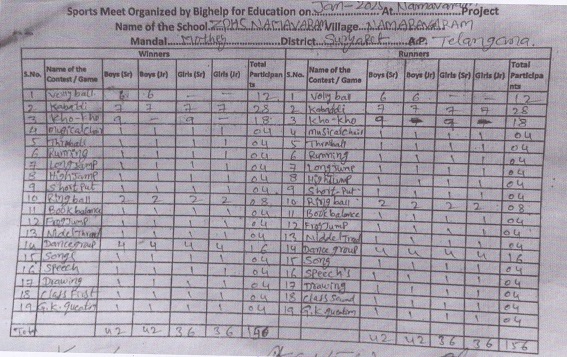 Sports Meet Organized by Bighelp for Education on Jan-202 At Namavaram Project
Name of the School ZPHS NAMAVARAM Village NAMARAVARAM
Mandal Mothey District Suryapet A.P. Telangana.
Winners Runners
S.No. Name of the Contest / Game Boys (Sr) Boys (Jr) Girls (Sr) Girls (Jr) Total Participants S.No. Name of the Contest / Game Boys (Sr) Boys (Jr) Girls (Sr) Girls (Jr) Total Participants
1 Volly ball 6 6 - - 12 1 Volly ball 6 6 - - 12
2 Kabaddi 7 7 7 7 28 2 Kabaddi 7 7 7 7 28
3 Kho-kho 9 - 9 - 18 3 Kho-kho 9 9 18
4 Musicalchair 1 1 1 1 04 4 musicalchair 1 1 1 1 04
5 Thinball 1 1 1 1 04 5 Thinball 1 1 1 1 04
6 Running 1 1 1 1 04 6 Running 1 1 1 1 04
7 Longjump 1 1 1 1 04 7 Longjump 1 1 1 1 04
8 HighJump 1 1 1 1 04 8 HighJump 1 1 1 1 04
9 Short Put 1 1 1 1 04 9 Short-Put 1 1 1 1 04
10 Ring ball 2 2 2 2 08 10 Ring ball 2 2 2 2 08
11 Book balance 1 1 1 1 04 11 Book balance 1 1 1 1 04
12 Frog Jump 1 1 1 1 04 12 Frog Jump 1 1 1 1 04
13 1 1 1 1 04 13 1 1 1 1 04
14 Dance group 4 4 4 4 16 14 Dance group 4 4 4 4 16
15 Songs 1 1 1 1 04 15 Song 1 1 1 1 04
16 Speech 1 1 1 1 04 16 Speech's 1 1 1 1 04
17 Drawing 1 1 1 1 04 17 Drawing 1 1 1 1 04
18 Class First 1 1 1 1 04 18 Class 1 1 1 1 04
19 G.K. 1 1 1 1 04 19 G.K. 1 1 1 1 04
Total 42 42 36 36 156 42 42 36 36 156